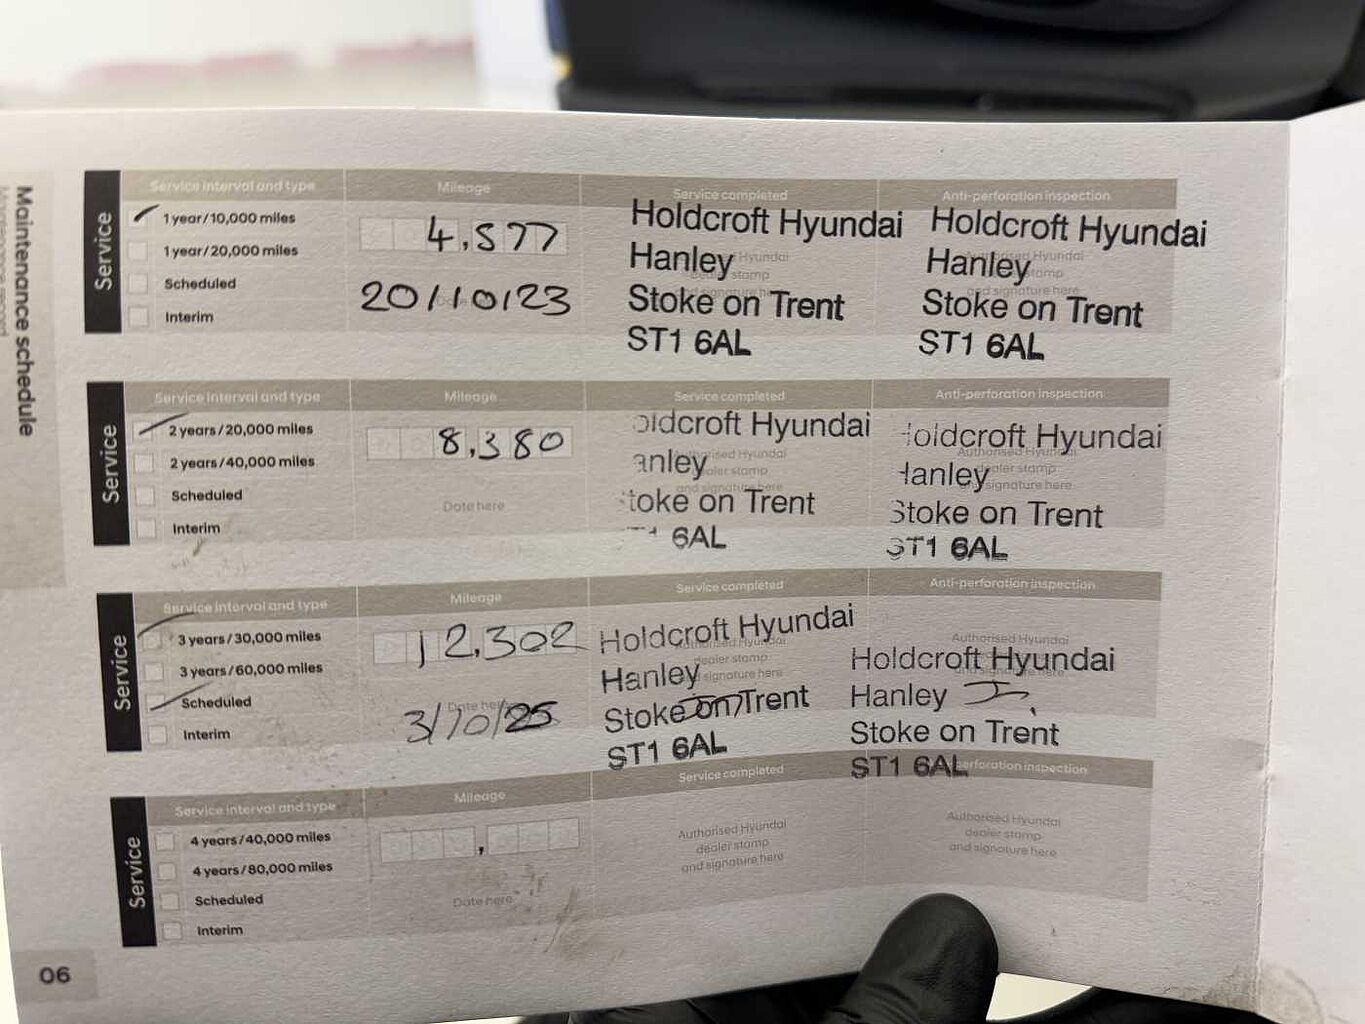 Maintenance schedule
Service
Service interval and type
Mileage
Service completed
Anti-perforation inspection
1 year/10,000 miles
1 year/20,000 miles
Scheduled
Interim
4,577
20/10/23
Holdcroft Hyundai
Hanley
Stoke on Trent
ST1 6AL
Holdcroft Hyundai
Hanley
Stoke on Trent
ST1 6AL
Service
Service interval and type
Mileage
Service completed
Anti-perforation inspection
2 years/20,000 miles
2 years/40,000 miles
Scheduled
Interim
8,380
Date here
oldcroft Hyundai
anley
Stoke on Trent
ST1 6AL
Holdcroft Hyundai
Hanley
Stoke on Trent
ST1 6AL
Service
Service interval and type
Mileage
Service completed
Anti-perforation inspection
3 years/30,000 miles
3 years/60,000 miles
Scheduled
Interim
12,302
3/10/25
Holdcroft Hyundai
Hanley
Stoke on Trent
ST1 6AL
Authorised Hyundai
Holdcroft Hyundai
Hanley
Stoke on Trent
ST1 6AL
Service
Service interval and type
Mileage
Service completed
perforation inspection
4 years/40,000 miles
4 years/80,000 miles
Scheduled
Interim
Date here
Authorised Hyundai
dealer stamp
and signature here
Authorised Hyundai
dealer stamp
and signature here
06